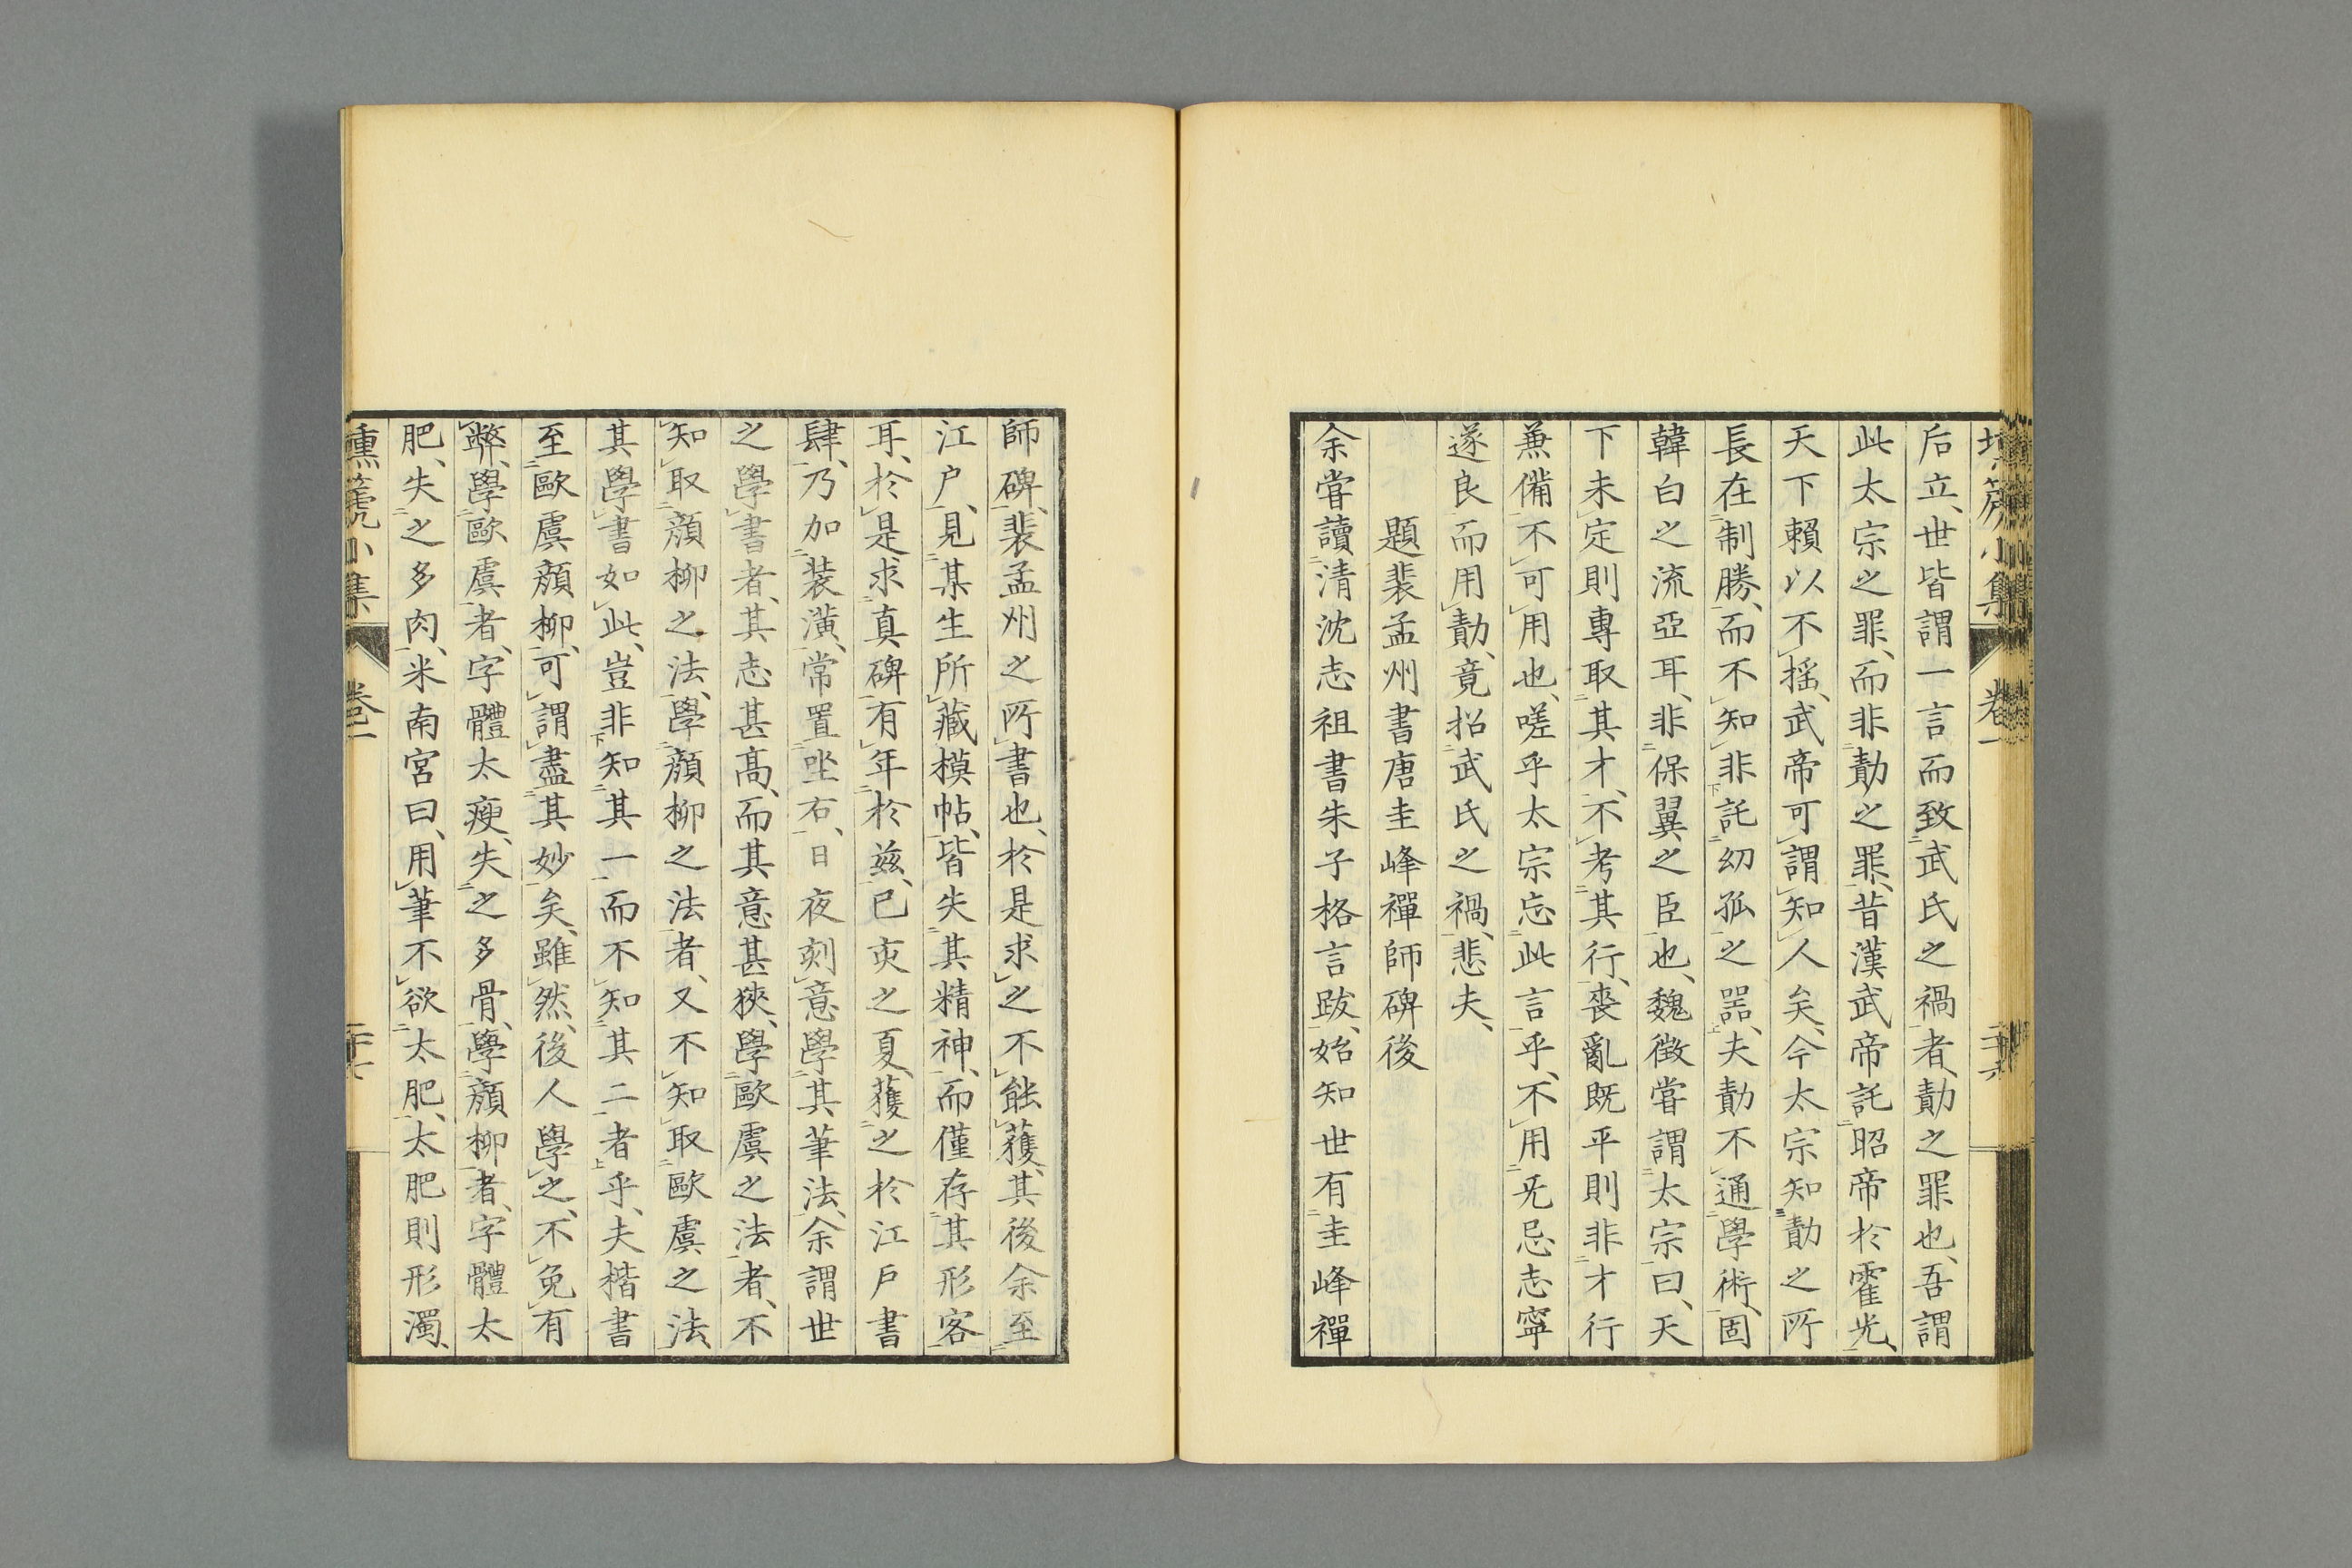 后立、世皆謂一言而致武氏之禍者、勣之罪也、吾謂
此太宗之罪、而非勣之罪、昔漢武帝託昭帝於霍光、
天下賴以不搖、武帝可謂知人矣、今太宗知勣之所
長在制勝、而不知非託幼孤之器、夫勣不通學術、固
韓白之流亞耳、非保翼之臣也、魏徵嘗謂太宗曰、天
下未定則專取其才、不考其行、喪亂既平則非才行
兼備不可用也、嗟乎太宗忘此言乎、不用旡忌志寧
遂良而用勣、竟招武氏之禍、悲夫、
題裴孟州書唐圭峰禪師碑後
余嘗讀清沈志祖書朱子格言跋、始知世有圭峰禪
師碑、裴孟州之所書也、於是求之不能獲、其後余至
江戶、見某生所藏模帖、皆失其精神、而僅存其形容
耳、於是求真碑有年於茲、已亥之夏、獲之於江戶書
肆、乃加装潢、常置坐右、日夜刻意學其筆法、余謂世
之學書者、其志甚高、而其意甚狹、學歐虞之法者、不
知取顔柳之法、學顔柳之法者、又不知取歐虞之法、
其學書如此、豈非知其一而不知其二者乎、夫楷書
至歐虞顔柳、可謂盡其妙矣、雖然、後人學之、不免有
弊、學歐虞者、字體太瘦、失之多骨、學顔柳者、字體太
肥、失之多肉、米南宮曰、用筆不欲太肥、太肥則形濁、
壎篪小集 卷一